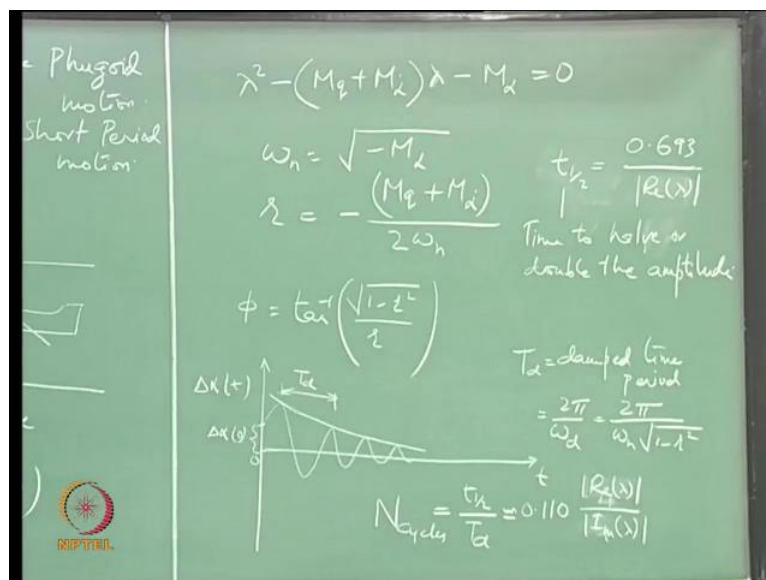 Phugoid
motion.
Short Period
motion.
λ² − (M_q + M_α̇) λ − M_α = 0
ω_n = √(−M_α)
ζ = − (M_q + M_α̇) / 2ω_n
t_{1/2} = 0.693 / |Re(λ)|
Time to halve or
double the amplitude.
φ = tan⁻¹(√(1−ζ²) / ζ)
Δα(t)
T_d
Δα(0)
0
t
T_d = damped time
period
= 2π/ω_d = 2π / ω_n √(1−ζ²)
N_cycles = t_{1/2} / T_d = 0.110 |Re(λ)| / |Im(λ)|
)
NPTEL